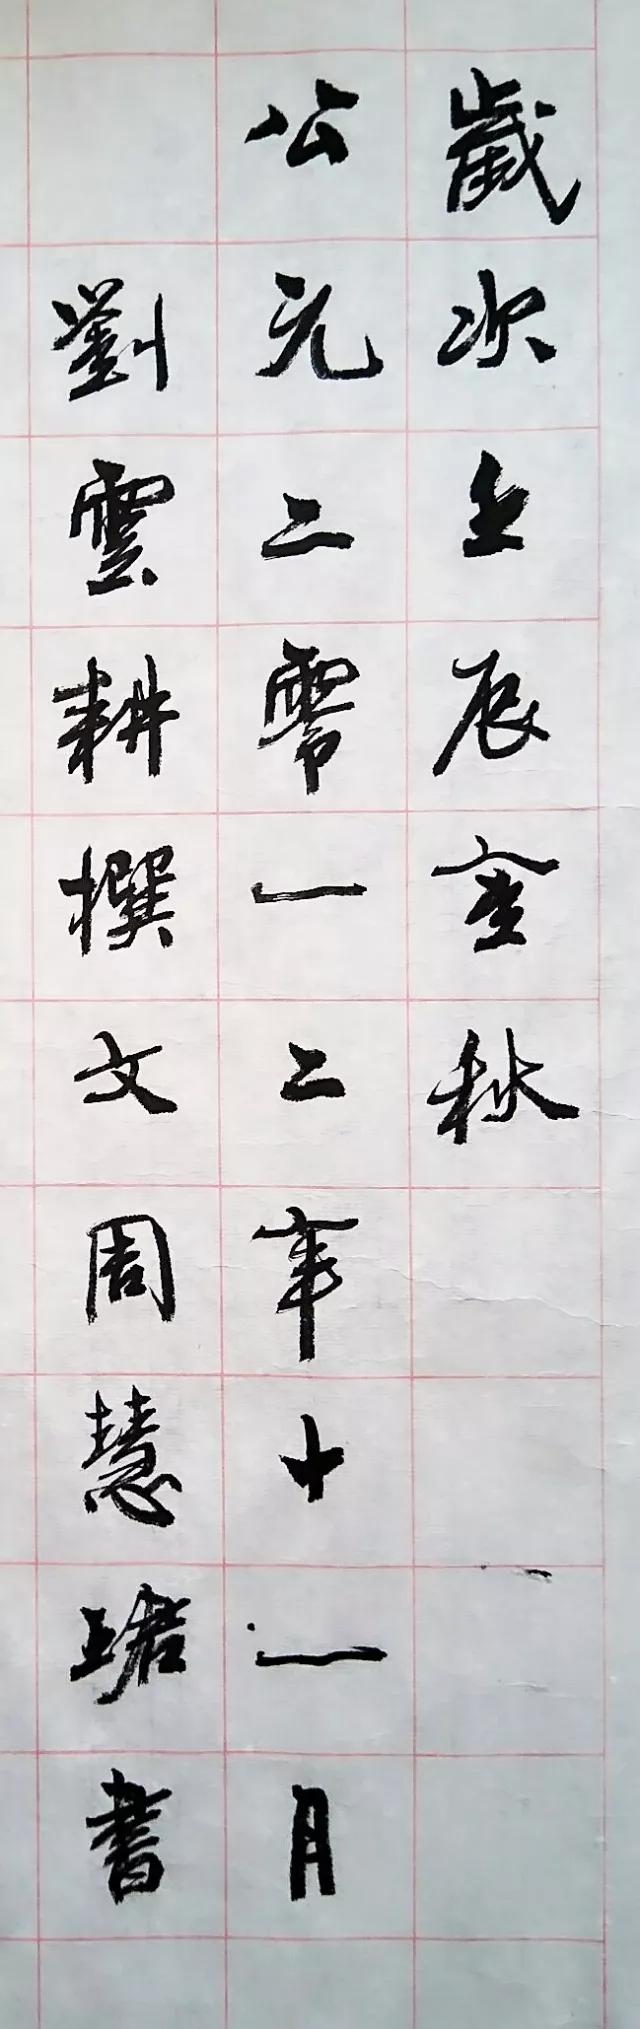 歲次壬辰金秋
公元二零一二年十一月
劉雲耕撰文周慧珺書